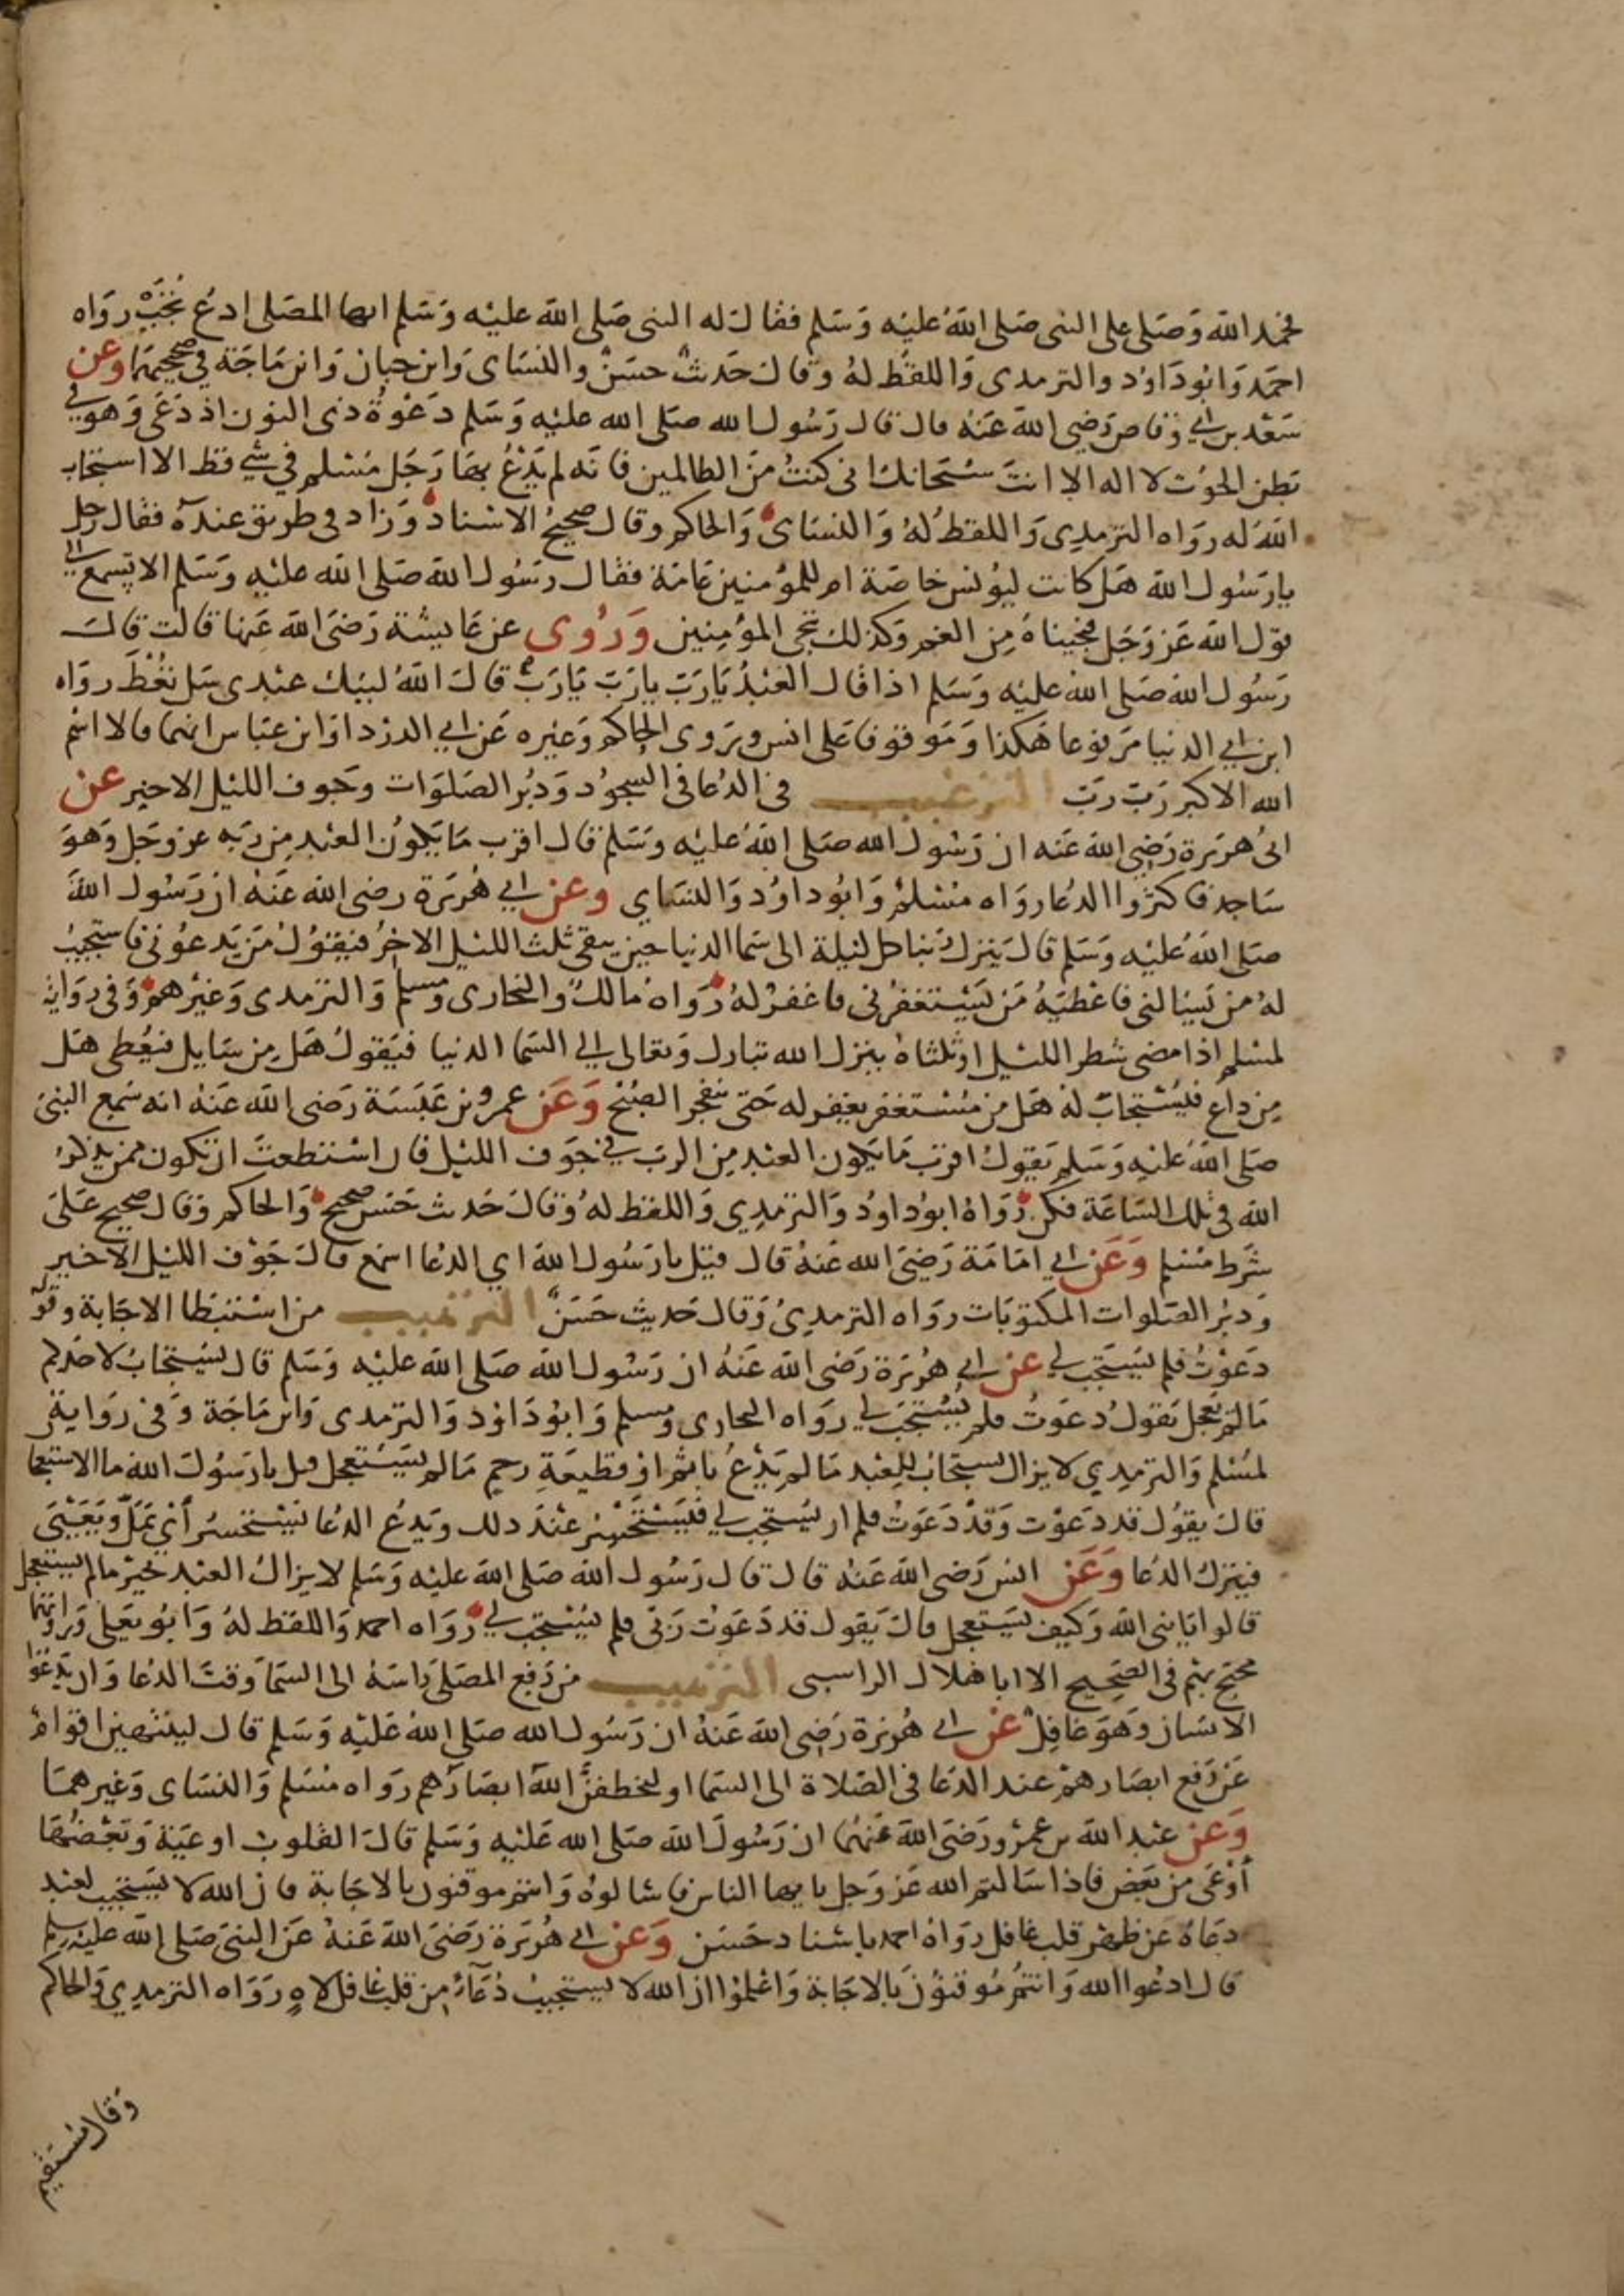 فحمد الله وصلى على النبي صلى الله عليه وسلم فقال له النبي صلى الله عليه وسلم ايها المصلى ادع تجب رواه
احمد وابو داود والترمدى واللفظ له وقال حديث حسن والنساى وابن حبان وابن ماجة في صحيحيهما وعن
سعد بن ابي وقاص رضي الله عنه قال قال رسول الله صلى الله عليه وسلم دعوة ذى النون اذ دعى وهو في
بطن الحوت لا اله الا انت سبحانك انى كنت من الظالمين فانه لم يدع بها رجل مسلم في شي قط الا استجاب
الله له رواه الترمدي واللفظ له والنساى والحاكم وقال صحيح الاسناد وزاد في طريق عنده فقال رجل
يا رسول الله هل كانت ليونس خاصة ام للمؤمنين عامة فقال رسول الله صلى الله عليه وسلم الا تسمع الي
قول الله عز وجل فنجيناه من الغم وكذلك ننجي المؤمنين وروى عن عايشة رضي الله عنها قالت قال
رسول الله صلى الله عليه وسلم اذا قال العبد يا رب يا رب يا رب قال الله لبيك عبدى سل تعط رواه
ابن ابي الدنيا مرفوعا هكذا وموقوفا على انس وروى الحاكم وغيره عن ابي الدردا وابن عباس انهما قالا اسم
الله الاكبر رب رب الترغيب في الدعا في السجود ودبر الصلوات وجوف الليل الاخير عن
ابى هريرة رضي الله عنه ان رسول الله صلى الله عليه وسلم قال اقرب ما يكون العبد من ربه عز وجل وهو
ساجد فاكثروا الدعا رواه مسلم وابو داود والنساي وعن ابي هريرة رضى الله عنه ان رسول الله
صلى الله عليه وسلم قال ينزل ربنا كل ليلة الى سما الدنيا حين يبقى ثلث الليل الاخر فيقول من يدعونى فاستجيب
له من يسالنى فاعطيه من يستغفرنى فاغفر له رواه مالك والبخارى ومسلم والترمدى وغيرهم وفي رواية
لمسلم اذا مضى شطر الليل او ثلثاه ينزل الله تبارك وتعالى الي السما الدنيا فيقول هل من سايل فيعطى هل
من داع فيستجاب له هل من مستغفر يغفر له حتى ينفجر الصبح وعن عمرو بن عبسة رضى الله عنه انه سمع النبى
صلى الله عليه وسلم يقول اقرب ما يكون العبد من الرب في جوف الليل فان استطعت ان تكون ممن يذكر
الله في تلك الساعة فكن رواه ابو داود والترمدي واللفظ له وقال حديث حسن صحيح والحاكم وقال صحيح على
شرط مسلم وعن ابي امامة رضي الله عنه قال قيل يا رسول الله اي الدعا اسمع قال جوف الليل الاخير
ودبر الصلوات المكتوبات رواه الترمدي وقال حديث حسن الترهيب من استبطا الاجابة وقوله
دعوت فلم يستجب لي عن ابي هريرة رضى الله عنه ان رسول الله صلى الله عليه وسلم قال يستجاب لاحدكم
ما لم يعجل يقول دعوت فلم يستجب لي رواه البخارى ومسلم وابو داود والترمدى وابن ماجة وفي رواية
لمسلم والترمدي لا يزال يستجاب للعبد ما لم يدع باثم او قطيعة رحم ما لم يستعجل قيل يا رسول الله ما الاستعجا
قال يقول قد دعوت وقد دعوت فلم ار يستجب لي فيستحسر عند ذلك ويدع الدعا يستحسر أي يمل ويعيى
فيترك الدعا وعن انس رضى الله عنه قال قال رسول الله صلى الله عليه وسلم لا يزال العبد بخير ما لم يستعجل
قالوا يا نبى الله وكيف يستعجل قال يقول قد دعوت ربى فلم يستجب لي رواه احمد واللفظ له وابو يعلى ورواتهما
محتج بهم في الصحيح الا ابا هلال الراسبى الترهيب من رفع المصلى راسه الى السما وقت الدعا وان يدعوا
الانسان وهو غافل عن ابي هريرة رضي الله عنه ان رسول الله صلى الله عليه وسلم قال لينتهين اقوام
عن رفع ابصارهم عند الدعا في الصلاة الى السما او لتخطفن الله ابصارهم رواه مسلم والنساى وغيرهما
وعن عبد الله بن عمرو رضى الله عنهما ان رسول الله صلى الله عليه وسلم قال القلوب اوعية وبعضها
أوعى من بعض فاذا سالتم الله عز وجل يا ايها الناس فاسالوه وانتم موقنون بالاجابة فان الله لا يستجيب لعبد
دعاه عن ظهر قلب غافل رواه احمد باسناد حسن وعن ابي هريرة رضى الله عنه عن النبى صلى الله عليه وسلم
قال ادعوا الله وانتم موقنون بالاجابة واعلموا ان الله لا يستجيب دعآء من قلب غافل لاه رواه الترمدي والحاكم
وقال مستقيم